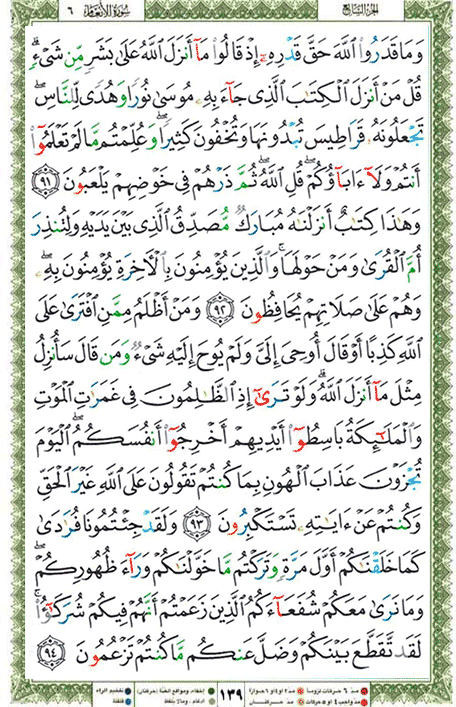 سورة الأنعام ٦ الجزء السابع
وَمَا قَدَرُوا۟ ٱللَّهَ حَقَّ قَدْرِهِۦٓ إِذْ قَالُوا۟ مَآ أَنزَلَ ٱللَّهُ عَلَىٰ بَشَرٍ مِّن شَىْءٍ ۗ
قُلْ مَنْ أَنزَلَ ٱلْكِتَٰبَ ٱلَّذِى جَآءَ بِهِۦ مُوسَىٰ نُورًا وَهُدًى لِّلنَّاسِ ۖ
تَجْعَلُونَهُۥ قَرَاطِيسَ تُبْدُونَهَا وَتُخْفُونَ كَثِيرًا ۖ وَعُلِّمْتُم مَّا لَمْ تَعْلَمُوٓا۟
أَنتُمْ وَلَآ ءَابَآؤُكُمْ ۖ قُلِ ٱللَّهُ ۖ ثُمَّ ذَرْهُمْ فِى خَوْضِهِمْ يَلْعَبُونَ ٩١
وَهَٰذَا كِتَٰبٌ أَنزَلْنَٰهُ مُبَارَكٌ مُّصَدِّقُ ٱلَّذِى بَيْنَ يَدَيْهِ وَلِتُنذِرَ
أُمَّ ٱلْقُرَىٰ وَمَنْ حَوْلَهَا ۚ وَٱلَّذِينَ يُؤْمِنُونَ بِٱلْءَاخِرَةِ يُؤْمِنُونَ بِهِۦ ۖ
وَهُمْ عَلَىٰ صَلَاتِهِمْ يُحَافِظُونَ ٩٢ وَمَنْ أَظْلَمُ مِمَّنِ ٱفْتَرَىٰ عَلَى
ٱللَّهِ كَذِبًا أَوْ قَالَ أُوحِىَ إِلَىَّ وَلَمْ يُوحَ إِلَيْهِ شَىْءٌ وَمَن قَالَ سَأُنزِلُ
مِثْلَ مَآ أَنزَلَ ٱللَّهُ ۗ وَلَوْ تَرَىٰٓ إِذِ ٱلظَّٰلِمُونَ فِى غَمَرَٰتِ ٱلْمَوْتِ
وَٱلْمَلَٰٓئِكَةُ بَاسِطُوٓا۟ أَيْدِيهِمْ أَخْرِجُوٓا۟ أَنفُسَكُمُ ۖ ٱلْيَوْمَ
تُجْزَوْنَ عَذَابَ ٱلْهُونِ بِمَا كُنتُمْ تَقُولُونَ عَلَى ٱللَّهِ غَيْرَ ٱلْحَقِّ
وَكُنتُمْ عَنْ ءَايَٰتِهِۦ تَسْتَكْبِرُونَ ٩٣ وَلَقَدْ جِئْتُمُونَا فُرَٰدَىٰ
كَمَا خَلَقْنَٰكُمْ أَوَّلَ مَرَّةٍ وَتَرَكْتُم مَّا خَوَّلْنَٰكُمْ وَرَآءَ ظُهُورِكُمْ ۖ
وَمَا نَرَىٰ مَعَكُمْ شُفَعَآءَكُمُ ٱلَّذِينَ زَعَمْتُمْ أَنَّهُمْ فِيكُمْ شُرَكَٰٓؤُا۟ ۚ
لَقَد تَّقَطَّعَ بَيْنَكُمْ وَضَلَّ عَنكُم مَّا كُنتُمْ تَزْعُمُونَ ٩٤
١٣٩
مد ٦ حركات لزوماً مد ٢ أو ٤ أو ٦ جوازاً إخفاء، ومواقع الغنة (حركتان) تفخيم الراء
مد واجب ٤ أو ٥ حركات مد حركتان إدغام، وما لا يلفظ قلقلة